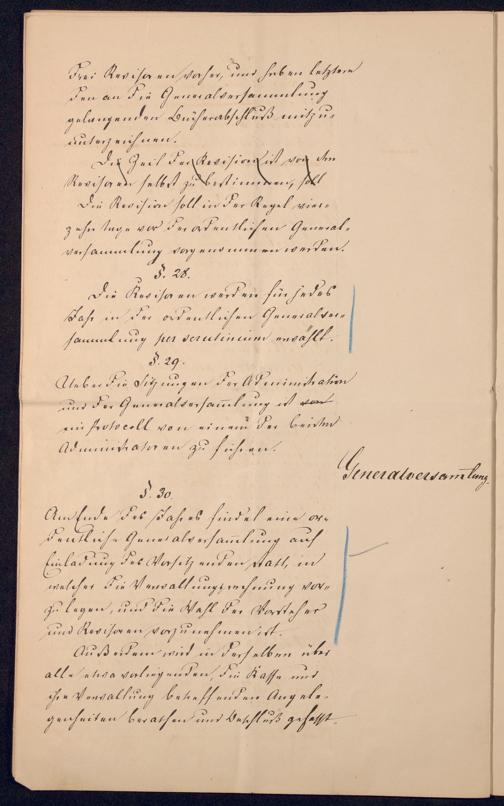 drei Revisoren vorher, und haben letztere
den an die Generalversammlung
gelangenden Bücherabschluß mitzu-
unterzeichnen.
Die Zeil der Revision ist von den
Revisoren selbst zu bestimmen, soll
Die Revision soll in der Regel vier-
zehn Tage vor der ordentlichen General-
versammlung vorgenommen werden.
§. 28.
Die Revisoren werden für jedes
Jahr in der ordentlichen Generalver-
sammlung per scrutinium erwählt.
§. 29.
Ueber die Sitzungen der Administration
und der Generalversam̅lung ist von
ein Protocoll von einem der beiden
Administratoren zu führen.
Generalversam̅lung.
§. 30.
Am Ende des Jahres findet eine or-
dentliche Generalversam̅lung auf
Einladung des Vorsitzenden statt, in
welcher die Verwaltungsrechnung vor-
zulegen, und die Wahl der Vorsteher
und Revisoren vorzunehmen ist.
Außerdem wird in derselben über
alle etwa vorliegenden, die Kasse und
ihre Verwaltung betreffenden Angele-
genheiten berathen und Beschluß gefasst.